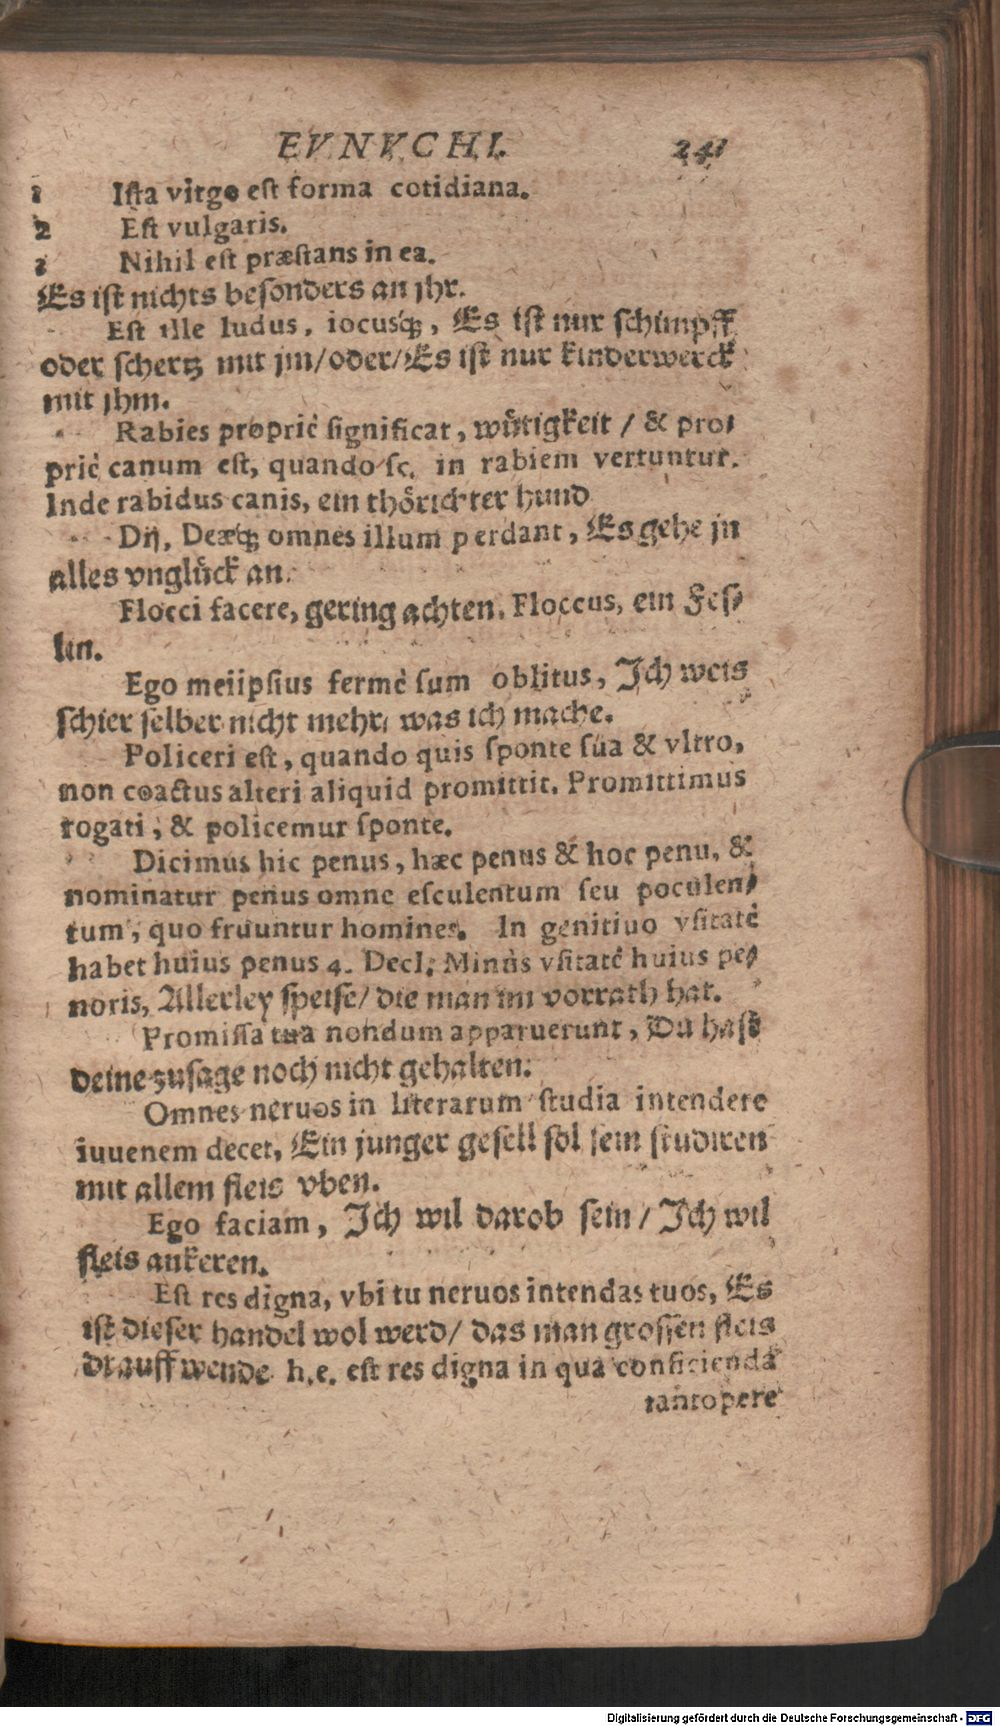 EVNVCHI. 241
1 Iſta virgo eſt forma cotidiana.
2 Eſt vulgaris.
3 Nihil eſt præſtans in ea.
Es iſt nichts beſonders an jhr.
Eſt ille ludus, iocusq́;, Es iſt nur ſchimpff
oder ſchertz mit jm/oder/Es iſt nur kinderwerck
mit jhm.
Rabies propriè ſignificat, wütigkeit / & pro-
priè canum eſt, quando ſc. in rabiem vertuntur.
Inde rabidus canis, ein thörichter hund
Dij, Deæq́; omnes illum perdant, Es gehe jn
alles vnglück an.
Flocci facere, gering achten. Floccus, ein Feſ-
lin.
Ego meiipſius fermè ſum oblitus, Ich weis
ſchier ſelber nicht mehr, was ich mache.
Policeri eſt, quando quis ſponte ſua & vltro,
non coactus alteri aliquid promittit. Promittimus
rogati, & policemur ſponte.
Dicimus hic penus, hæc penus & hoc penu, &
nominatur penus omne eſculentum ſeu poculen-
tum, quo fruuntur homines. In genitiuo vſitatè
habet huius penus 4. Decl. Minùs vſitatè huius pe-
noris, Allerley ſpeiſe/ die man im vorrath hat.
Promiſſa tua nondum apparuerunt, Du haſt
deine zuſage noch nicht gehalten.
Omnes neruos in literarum ſtudia intendere
iuuenem decet, Ein junger geſell ſol ſein ſtudiren
mit allem fleis vben.
Ego faciam, Ich wil darob ſein/ Ich wil
fleis ankeren.
Eſt res digna, vbi tu neruos intendas tuos, Es
iſt dieſer handel wol werd/ das man groſſen fleis
drauff wende h.e. eſt res digna in qua conficienda
tantopere
Digitalisierung gefördert durch die Deutsche Forschungsgemeinschaft - DFG